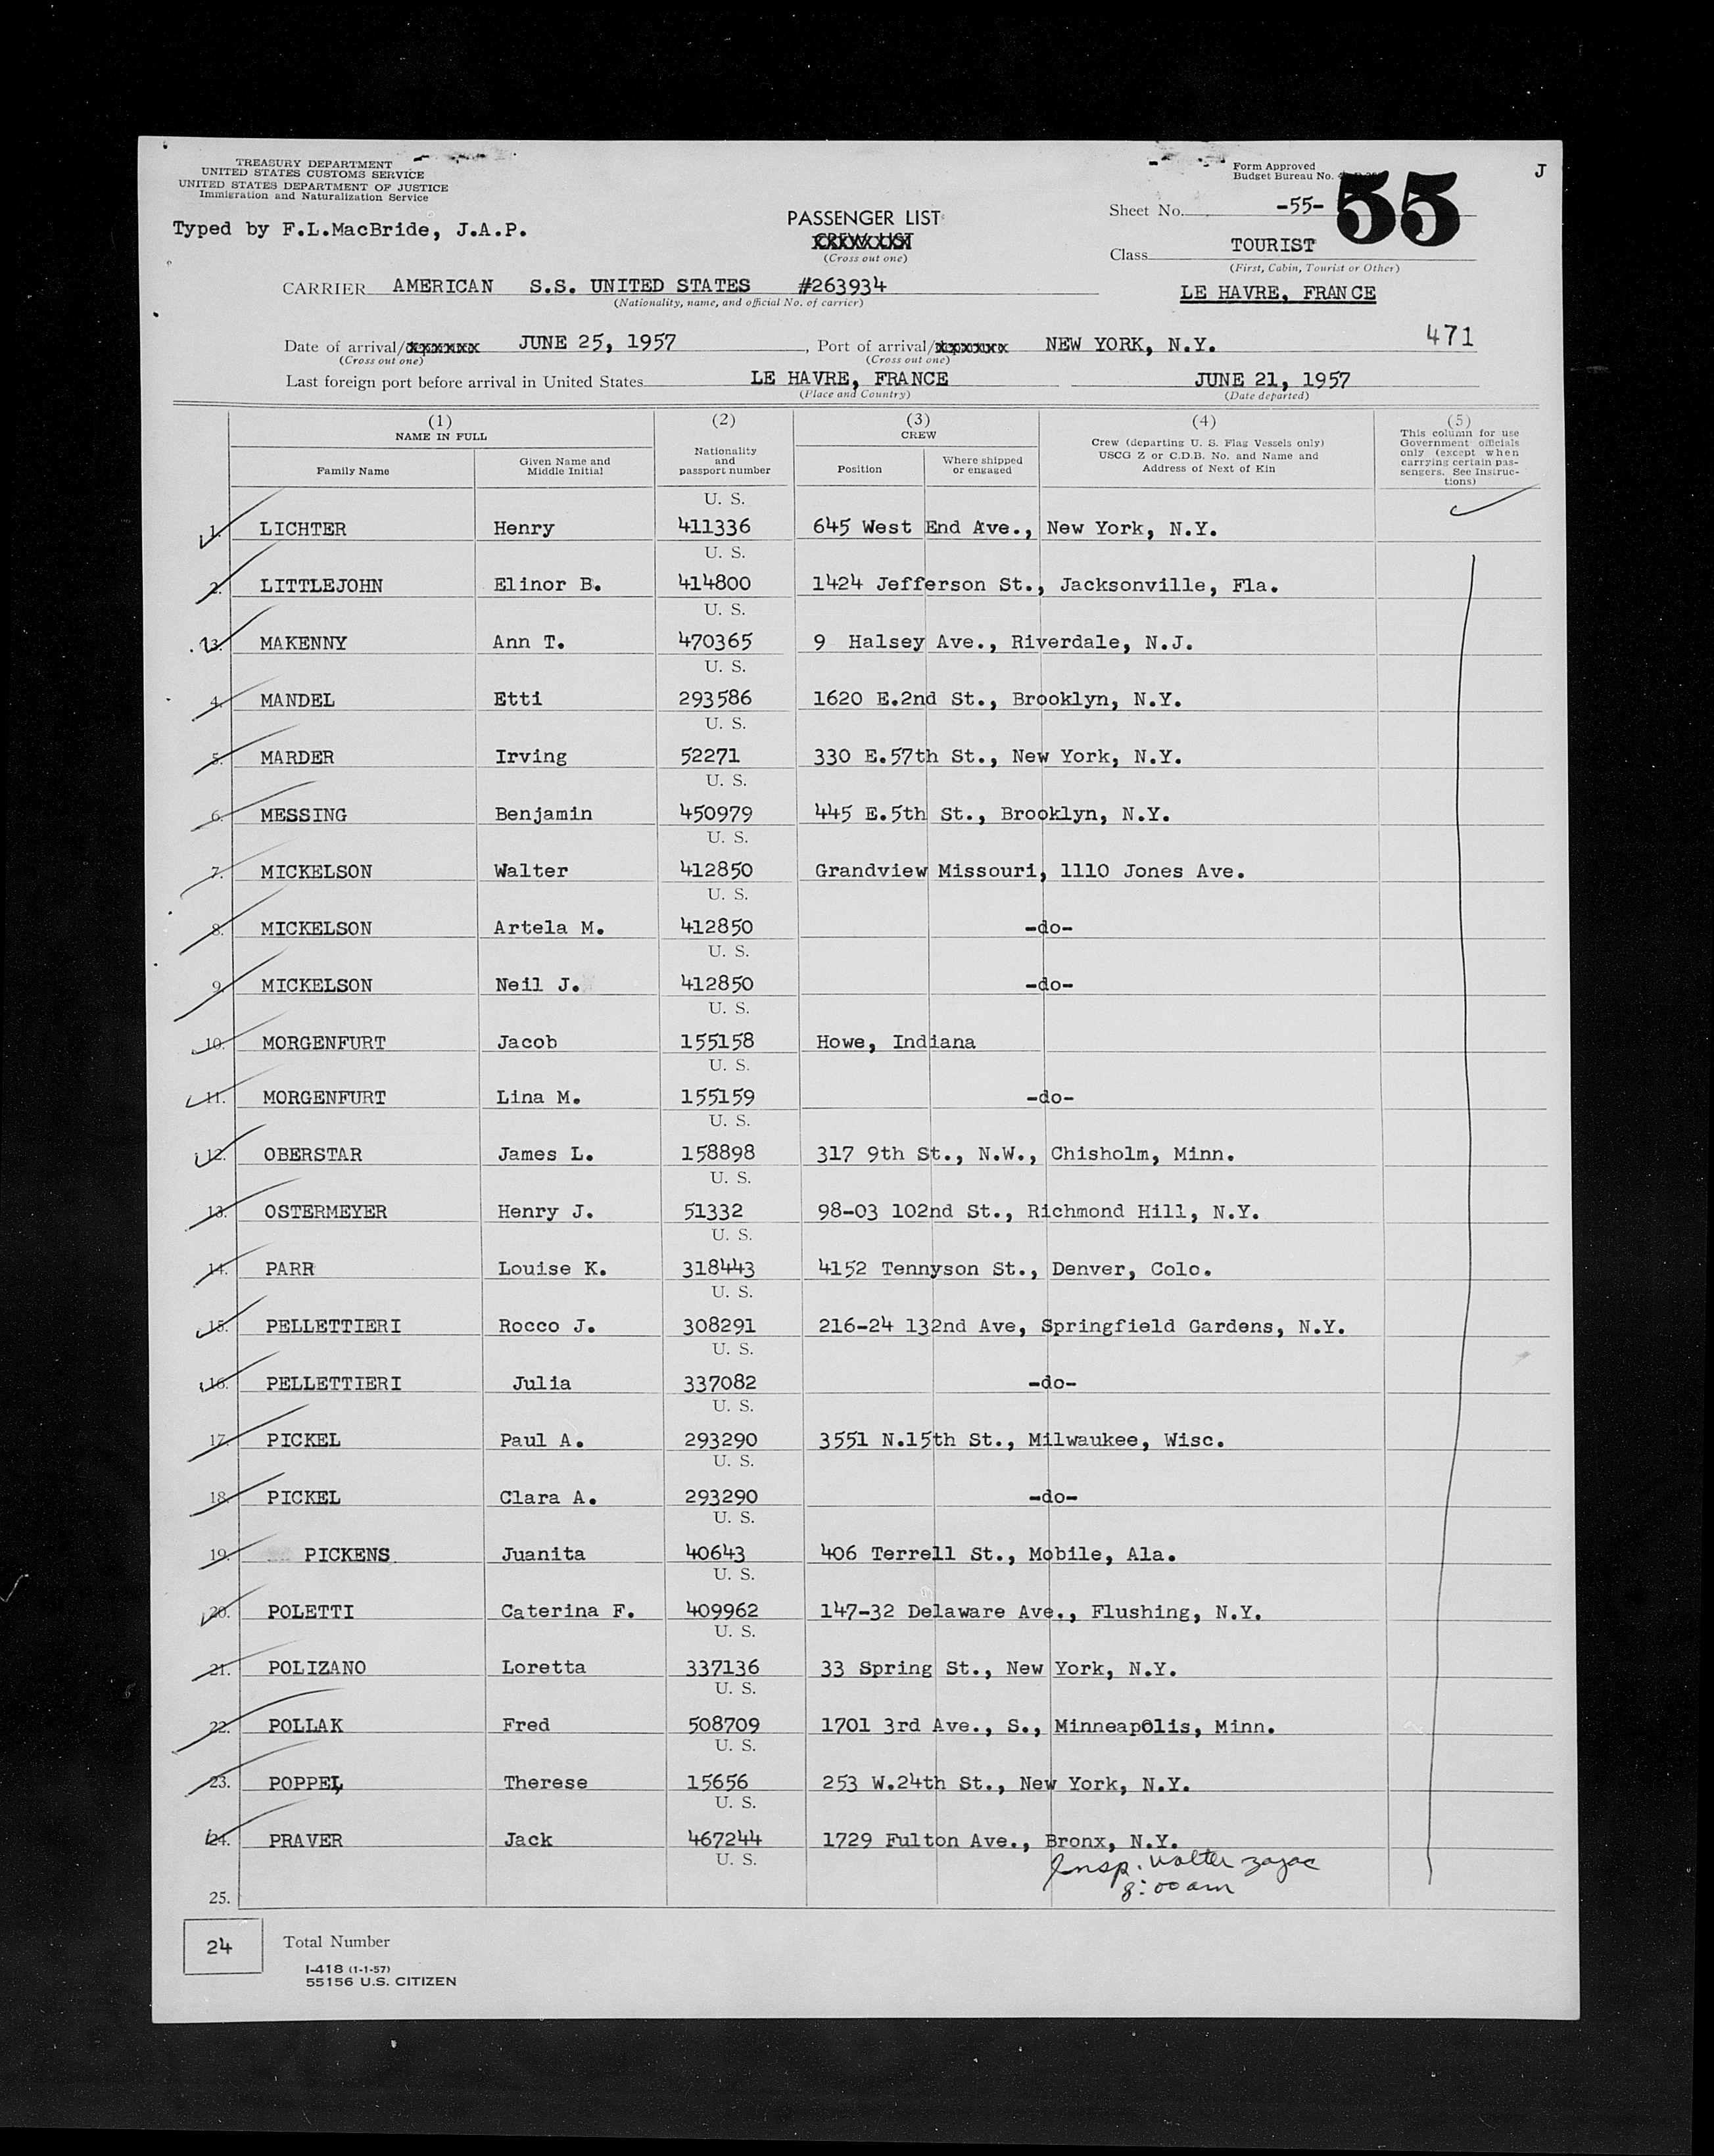 TREASURY DEPARTMENT
UNITED STATES CUSTOMS SERVICE
UNITED STATES DEPARTMENT OF JUSTICE
Immigration and Naturalization Service
Typed by F.L.MacBride, J.A.P.
PASSENGER LIST
CREW LIST
(Cross out one)
Form Approved
Budget Bureau No.
J
Sheet No. -55- 55
Class TOURIST
(First, Cabin, Tourist or Other)
CARRIER AMERICAN S.S. UNITED STATES #263934
(Nationality, name, and official No. of carrier)
LE HAVRE, FRANCE
471
Date of arrival/ JUNE 25, 1957, Port of arrival/ NEW YORK, N.Y.
(Cross out one) (Cross out one)
Last foreign port before arrival in United States LE HAVRE, FRANCE JUNE 21, 1957
(Place and Country) (Date departed)
(1) (2) (3) (4) (5)
NAME IN FULL
Family Name
Given Name and Middle Initial
Nationality and passport number
CREW
Position
Where shipped or engaged
Crew (departing U. S. Flag Vessels only)
USCG Z or C.D.B. No. and Name and
Address of Next of Kin
This column for use
Government officials
only (except when
carrying certain pas-
sengers. See Instruc-
tions)
U. S.
1. LICHTER Henry 411336 645 West End Ave., New York, N.Y.
U. S.
2. LITTLEJOHN Elinor B. 414800 1424 Jefferson St., Jacksonville, Fla.
U. S.
3. MAKENNY Ann T. 470365 9 Halsey Ave., Riverdale, N.J.
U. S.
4. MANDEL Etti 293586 1620 E.2nd St., Brooklyn, N.Y.
U. S.
5. MARDER Irving 52271 330 E.57th St., New York, N.Y.
U. S.
6. MESSING Benjamin 450979 445 E.5th St., Brooklyn, N.Y.
U. S.
7. MICKELSON Walter 412850 Grandview Missouri, 1110 Jones Ave.
U. S.
8. MICKELSON Artela M. 412850 -do-
U. S.
9. MICKELSON Neil J. 412850 -do-
U. S.
10. MORGENFURT Jacob 155158 Howe, Indiana
U. S.
11. MORGENFURT Lina M. 155159 -do-
U. S.
12. OBERSTAR James L. 158898 317 9th St., N.W., Chisholm, Minn.
U. S.
13. OSTERMEYER Henry J. 51332 98-03 102nd St., Richmond Hill, N.Y.
U. S.
14. PARR Louise K. 318443 4152 Tennyson St., Denver, Colo.
U. S.
15. PELLETTIERI Rocco J. 308291 216-24 132nd Ave, Springfield Gardens, N.Y.
U. S.
16. PELLETTIERI Julia 337082 -do-
U. S.
17. PICKEL Paul A. 293290 3551 N.15th St., Milwaukee, Wisc.
U. S.
18. PICKEL Clara A. 293290 -do-
U. S.
19. PICKENS Juanita 40643 406 Terrell St., Mobile, Ala.
U. S.
20. POLETTI Caterina F. 409962 147-32 Delaware Ave., Flushing, N.Y.
U. S.
21. POLIZANO Loretta 337136 33 Spring St., New York, N.Y.
U. S.
22. POLLAK Fred 508709 1701 3rd Ave., S., Minneapolis, Minn.
U. S.
23. POPPEL Therese 15656 253 W.24th St., New York, N.Y.
U. S.
24. PRAVER Jack 467244 1729 Fulton Ave., Bronx, N.Y.
U. S.
Insp. Walter Zajac
8:00 am
25.
24 Total Number
I-418 (1-1-57)
55156 U.S. CITIZEN